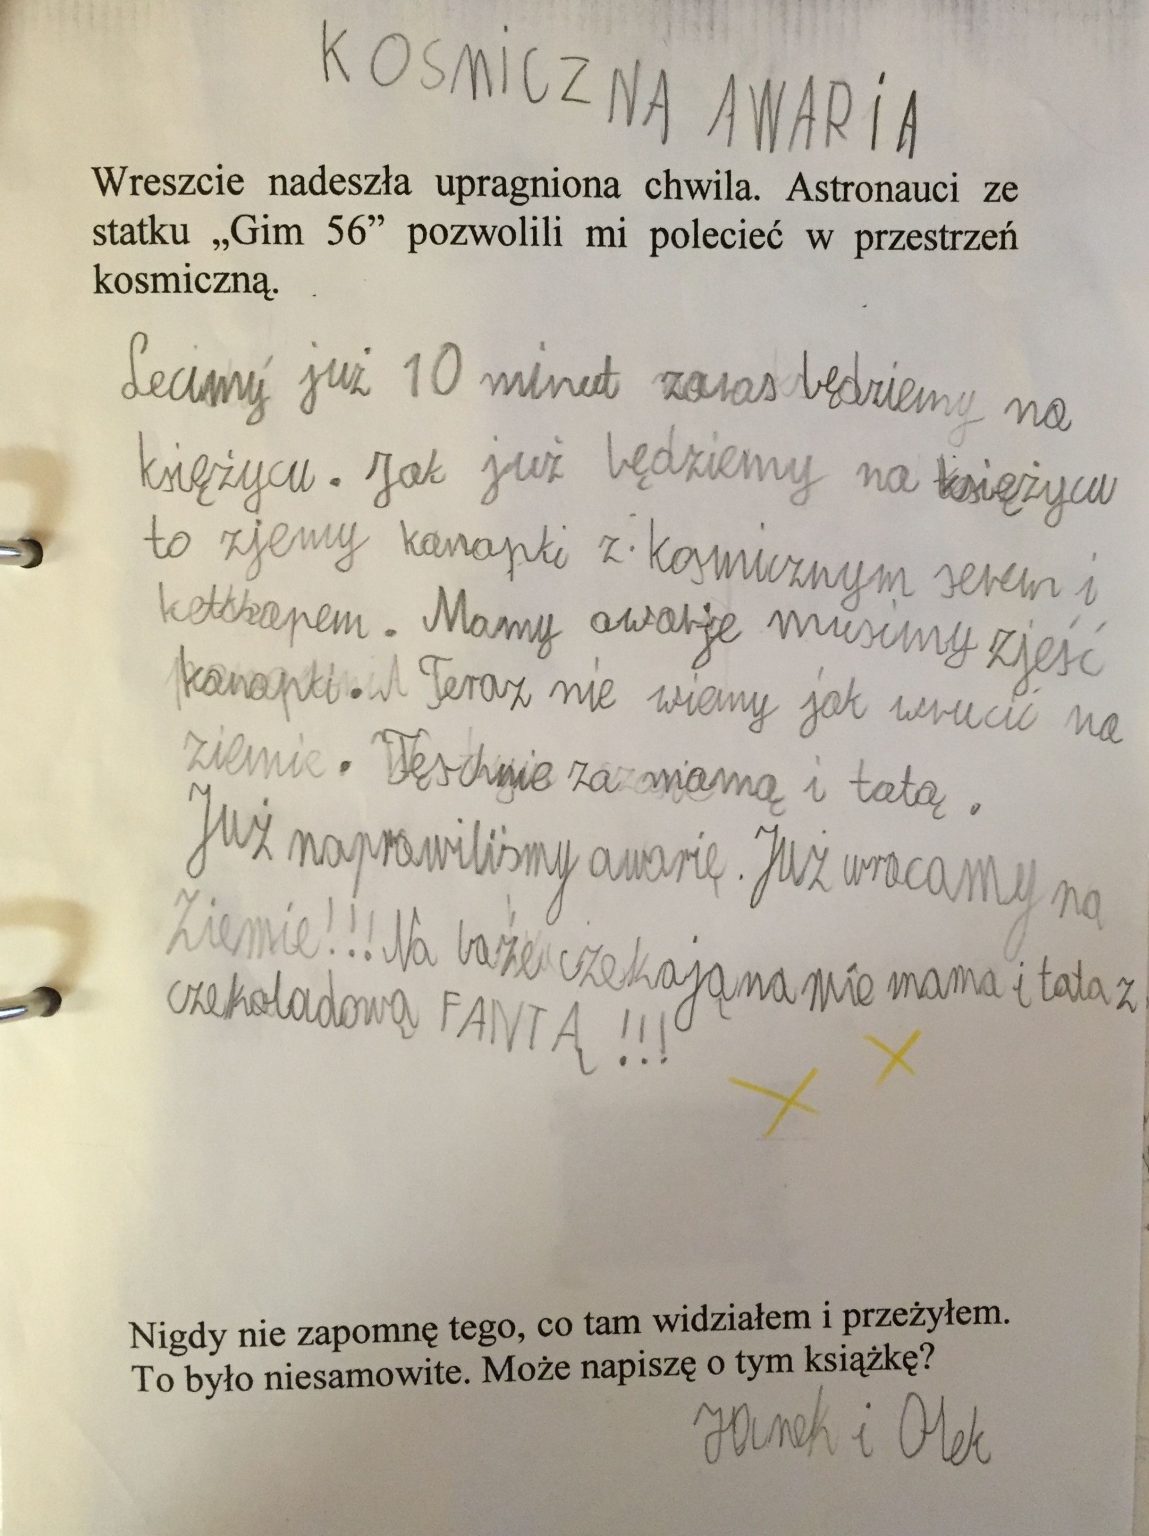 KOSMICZNA AWARIA
Wreszcie nadeszła upragniona chwila. Astronauci ze
statku „Gim 56” pozwolili mi polecieć w przestrzeń
kosmiczną.
Lecimy już 10 minut zaras będziemy na
księżycu. Jak już będziemy na księżycu
to zjemy kanapki z kosmicznym serem i
ketchapem. Mamy awarje musimy zjeść
kanapki. Teraz nie wiemy jak wrucić na
ziemie. Tęschnie za mamą i tatą.
Już naprawiliśmy awarię. Już wracamy na
Ziemie!!! Na baże czekają na mie mama i tata z
czekoladową FANTĄ !!!
Nigdy nie zapomnę tego, co tam widziałem i przeżyłem.
To było niesamowite. Może napiszę o tym książkę?
Janek i Olek